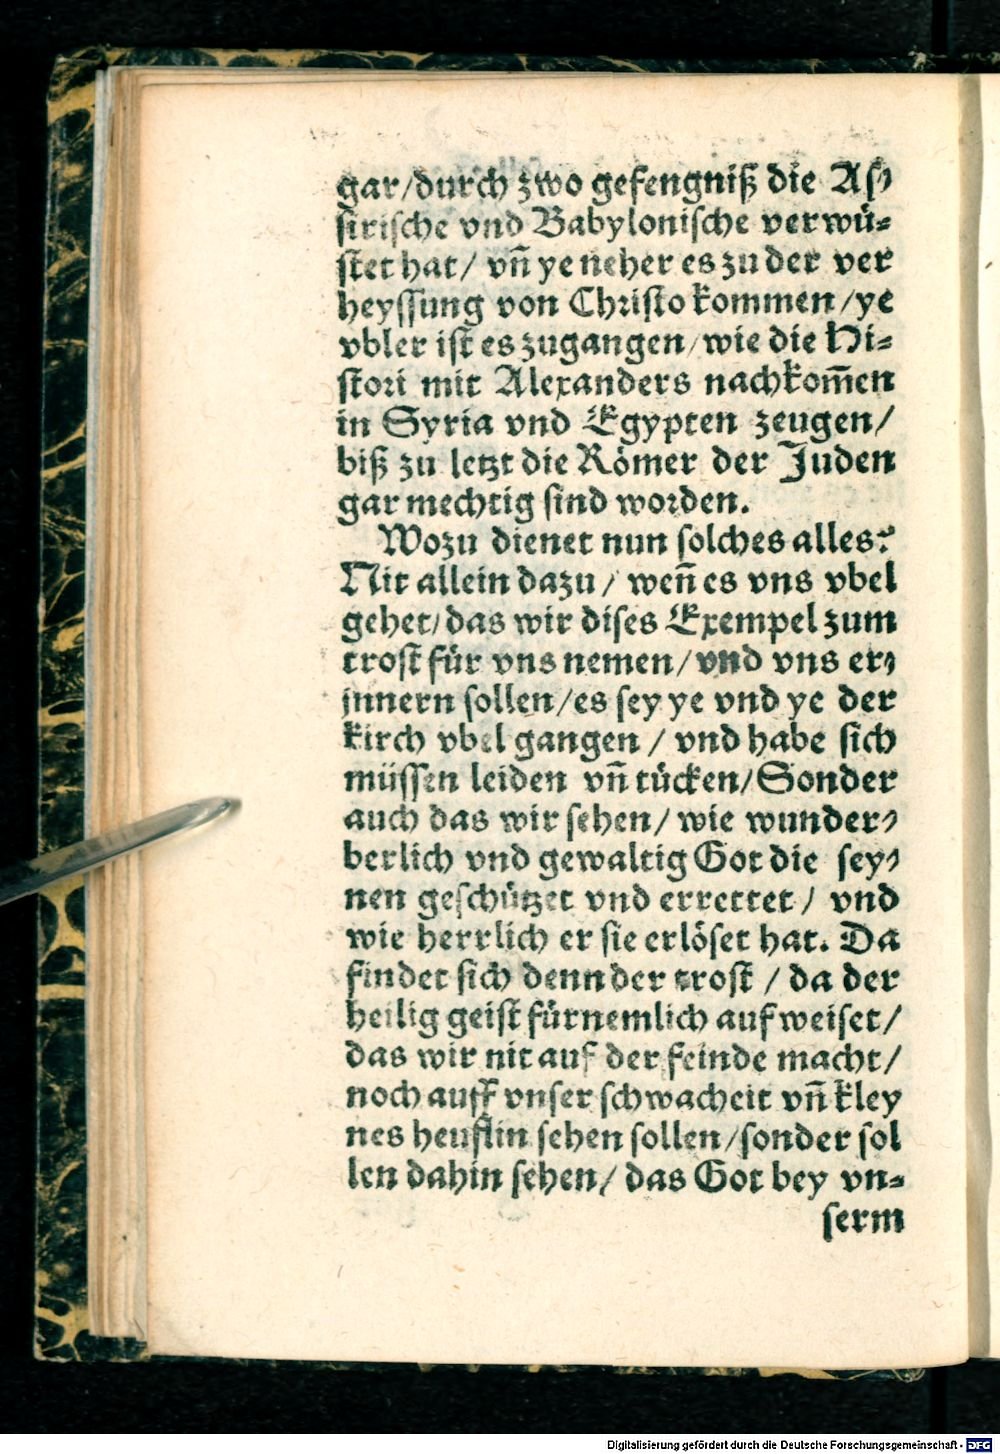 gar/durch zwo gefengniß die Aſ⸗
ſiriſche vnd Babyloniſche verwü⸗
ſtet hat/ vñ ye neher es zu der ver
heyſſung von Chriſto kommen/ye
vbler iſt es zugangen/wie die Hi⸗
ſtori mit Alexanders nachkom̃en
in Syria vnd Egypten zeugen/
biß zu letzt die Römer der Juden
gar mechtig ſind worden.
Wozu dienet nun ſolches alles?
Nit allein dazu/ weñ es vns vbel
gehet/das wir diſes Exempel zum
troſt für vns nemen/vnd vns er⸗
jnnern ſollen/es ſey ye vnd ye der
kirch vbel gangen/ vnd habe ſich
müſſen leiden vñ tücken/Sonder
auch das wir ſehen/ wie wunder⸗
berlich vnd gewaltig Got die ſey⸗
nen geſchützet vnd errettet/ vnd
wie herrlich er ſie erlöſet hat. Da
findet ſich denn der troſt/ da der
heilig geiſt fürnemlich auf weiſet/
das wir nit auf der feinde macht/
noch auff vnſer ſchwacheit vñ kley
nes heuflin ſehen ſollen/ſonder ſol
len dahin ſehen/ das Got bey vn⸗
ſerm
Digitalisierung gefördert durch die Deutsche Forschungsgemeinschaft - DFG